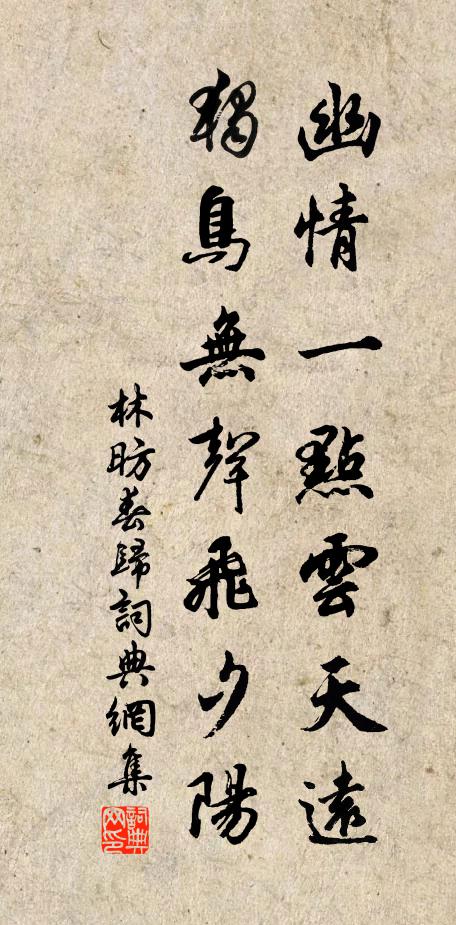 幽情一點雲天遠
獨鳥無聲飛夕陽
林昉春歸詞典網集
詞典
网印